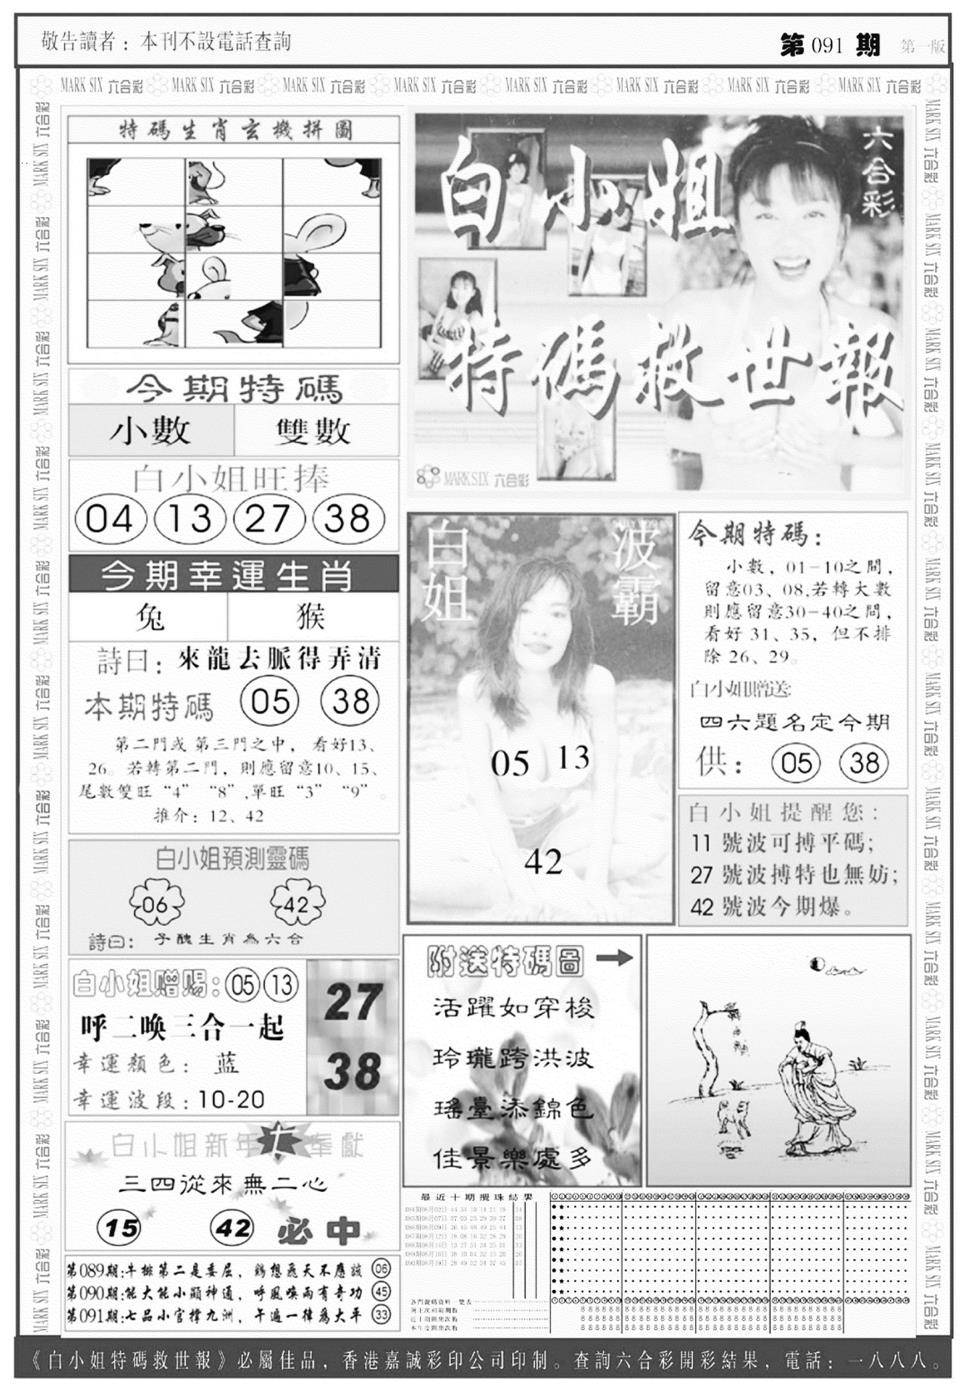 敬告讀者：本刊不設電話查詢
第 091 期 第一版
MARK SIX 六合彩 MARK SIX 六合彩 MARK SIX 六合彩 MARK SIX 六合彩 MARK SIX 六合彩 MARK SIX 六合彩 MARK SIX 六合彩 MARK SIX 六合彩
特碼生肖玄機拼圖
今期特碼
小數 雙數
白小姐旺捧
04 13 27 38
今期幸運生肖
兔 猴
詩曰：來龍去脈得弄清
本期特碼 05 38
第二門或第三門之中，看好13、
26。若轉第二門，則應留意10、15、
尾數雙旺“4”“8”,單旺“3”“9”。
推介：12、42
白小姐預測靈碼
06 42
詩曰：子醜生肖為六合
白小姐赠赐：05 13
呼二唤三合一起
幸運顏色：蓝
幸運波段：10-20
27
38
白小姐新年 奉獻
三四從來無二心
15 42 必中
第089期:牛排第二是委屈，鶴想飛天不應該 06
第090期:能大能小顯神通，呼風喚雨有奇功 45
第091期:七品小官撑九洲，午遍一律為太平 33
白小姐
六合彩
特碼救世報
MARK SIX 六合彩
白姐
波霸
05 13
42
今期特碼：
小數，01-10之間，
留意03、08,若轉大數
則應留意30-40之間，
看好 31、35，但不排
除 26、29。
白小姐贈送:
四六題名定今期
供：05 38
白小姐提醒您：
11 號波可搏平碼；
27 號波搏特也無妨；
42 號波今期爆。
附送特碼圖
活躍如穿梭
玲瓏跨洪波
瑤臺添錦色
佳景樂處多
最近十期攪珠結果
《白小姐特碼救世報》必屬佳品，香港嘉誠彩印公司印制。查詢六合彩開彩結果，電話：一八八八。